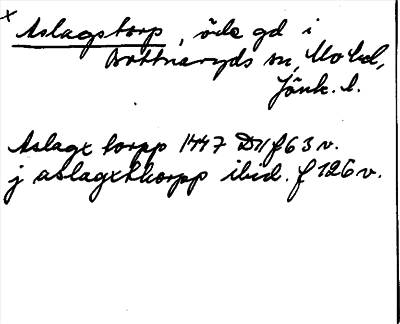 x Aslagstorp, öde gd i
Bottnaryds sn, Mo hd,
Jönk. l.
Aslagx torpp 1447 D 11 f 63 v.
j aslagxthorpp ibid. f 126 v.